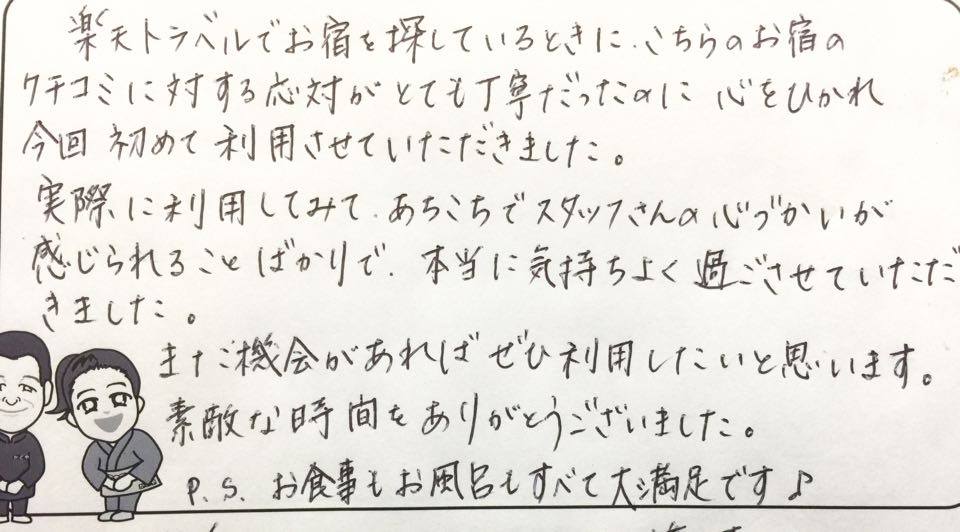 楽天トラベルでお宿を探しているときに、こちらのお宿の
クチコミに対する応対がとても丁寧だったのに心をひかれ
今回初めて利用させていただきました。
実際に利用してみて、あちこちでスタッフさんの心づかいが
感じられることばかりで、本当に気持ちよく過ごさせていただ
きました。
またご機会があればぜひ利用したいと思います。
素敵な時間をありがとうございました。
P.S. お食事もお風呂もすべて大満足です♪